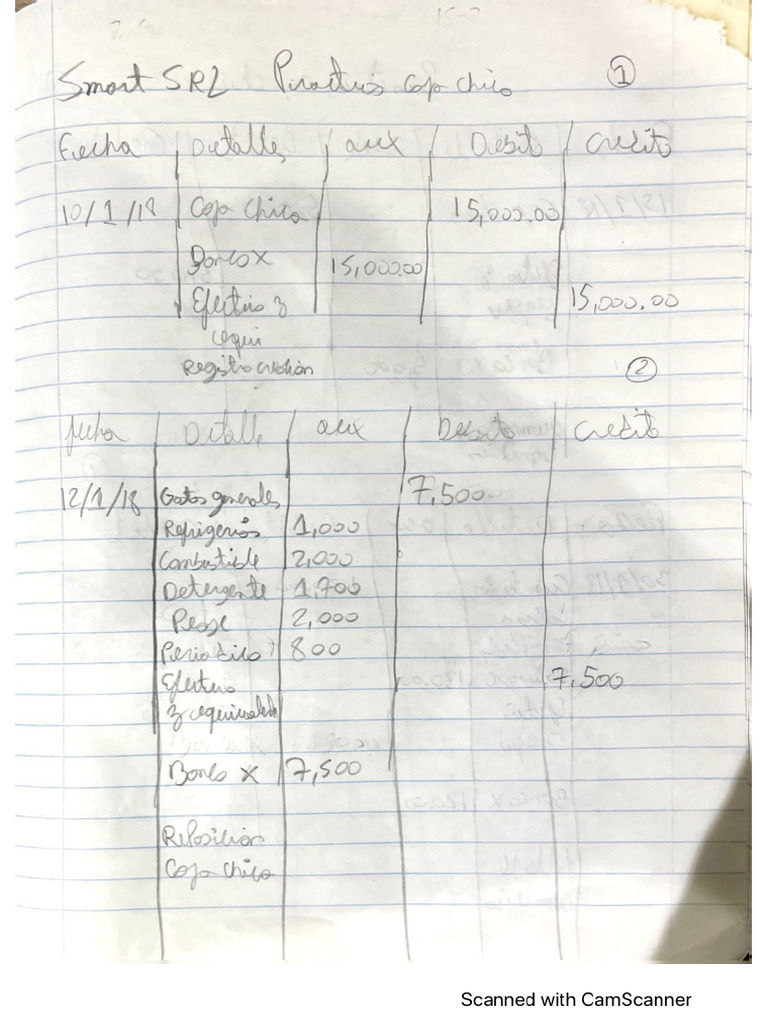 Smart SRL Practica caja chica 1
Fecha Detalles aux Debito Credito
10/1/18 Caja chica 15,000.00
Banco x 15,000.00
Efectivo y 15,000.00
equi
Registro creación
2
fecha Detalle aux Debito Credito
12/1/18 Gastos generales 7,500
Refrigerios 1,000
Combustible 2,000
Detergente 1,700
Peaje 2,000
Periodico 800
Efectivo 7,500
y equivalente
Banco x 7,500
Reposicion
Caja chica
Scanned with CamScanner